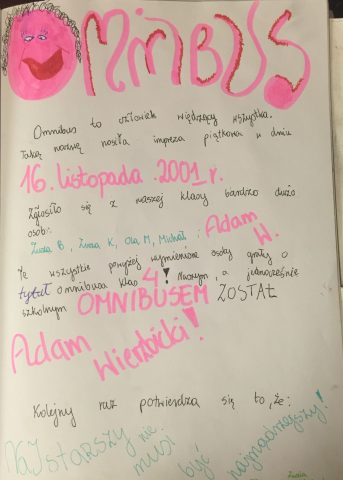 OMNIBUS
Omnibus to człowiek wiedzący wszystko.
Taką nazwę nosiła impreza piątkowa w dniu
16. listopada .2001 r.
Zgłosiło się z naszej klasy bardzo dużo
osób:
Zuzia B, Zuzia K, Ola M, Michał i Adam W.
Te wszystkie powyżej wymienione osoby grały o
tytuł omnibusa klas 4! , a jednocześnie
szkolnym OMNIBUSEM ZOSTAŁ
Adam
Wierzbicki!
Kolejny raz potwierdza się to, że:
NAJstarszy nie
musi
być
najmądrzejszy!
Zuzia